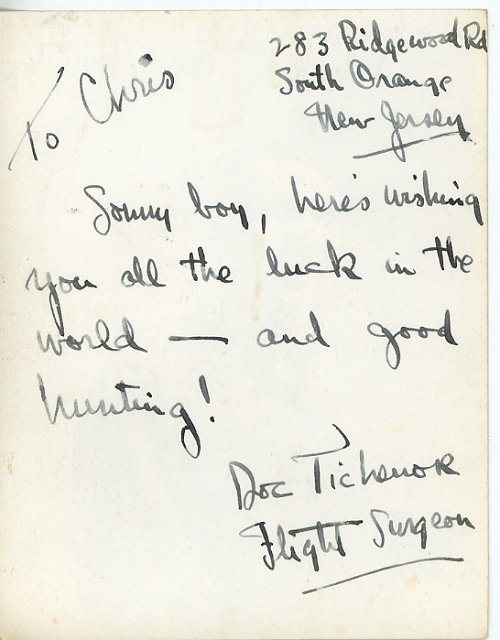 283 Ridgewood Rd
South Orange
New Jersey
To Chris
Sonny boy, here's wishing
you all the luck in the
world — and good
hunting!
Doc Tichenor
Flight Surgeon